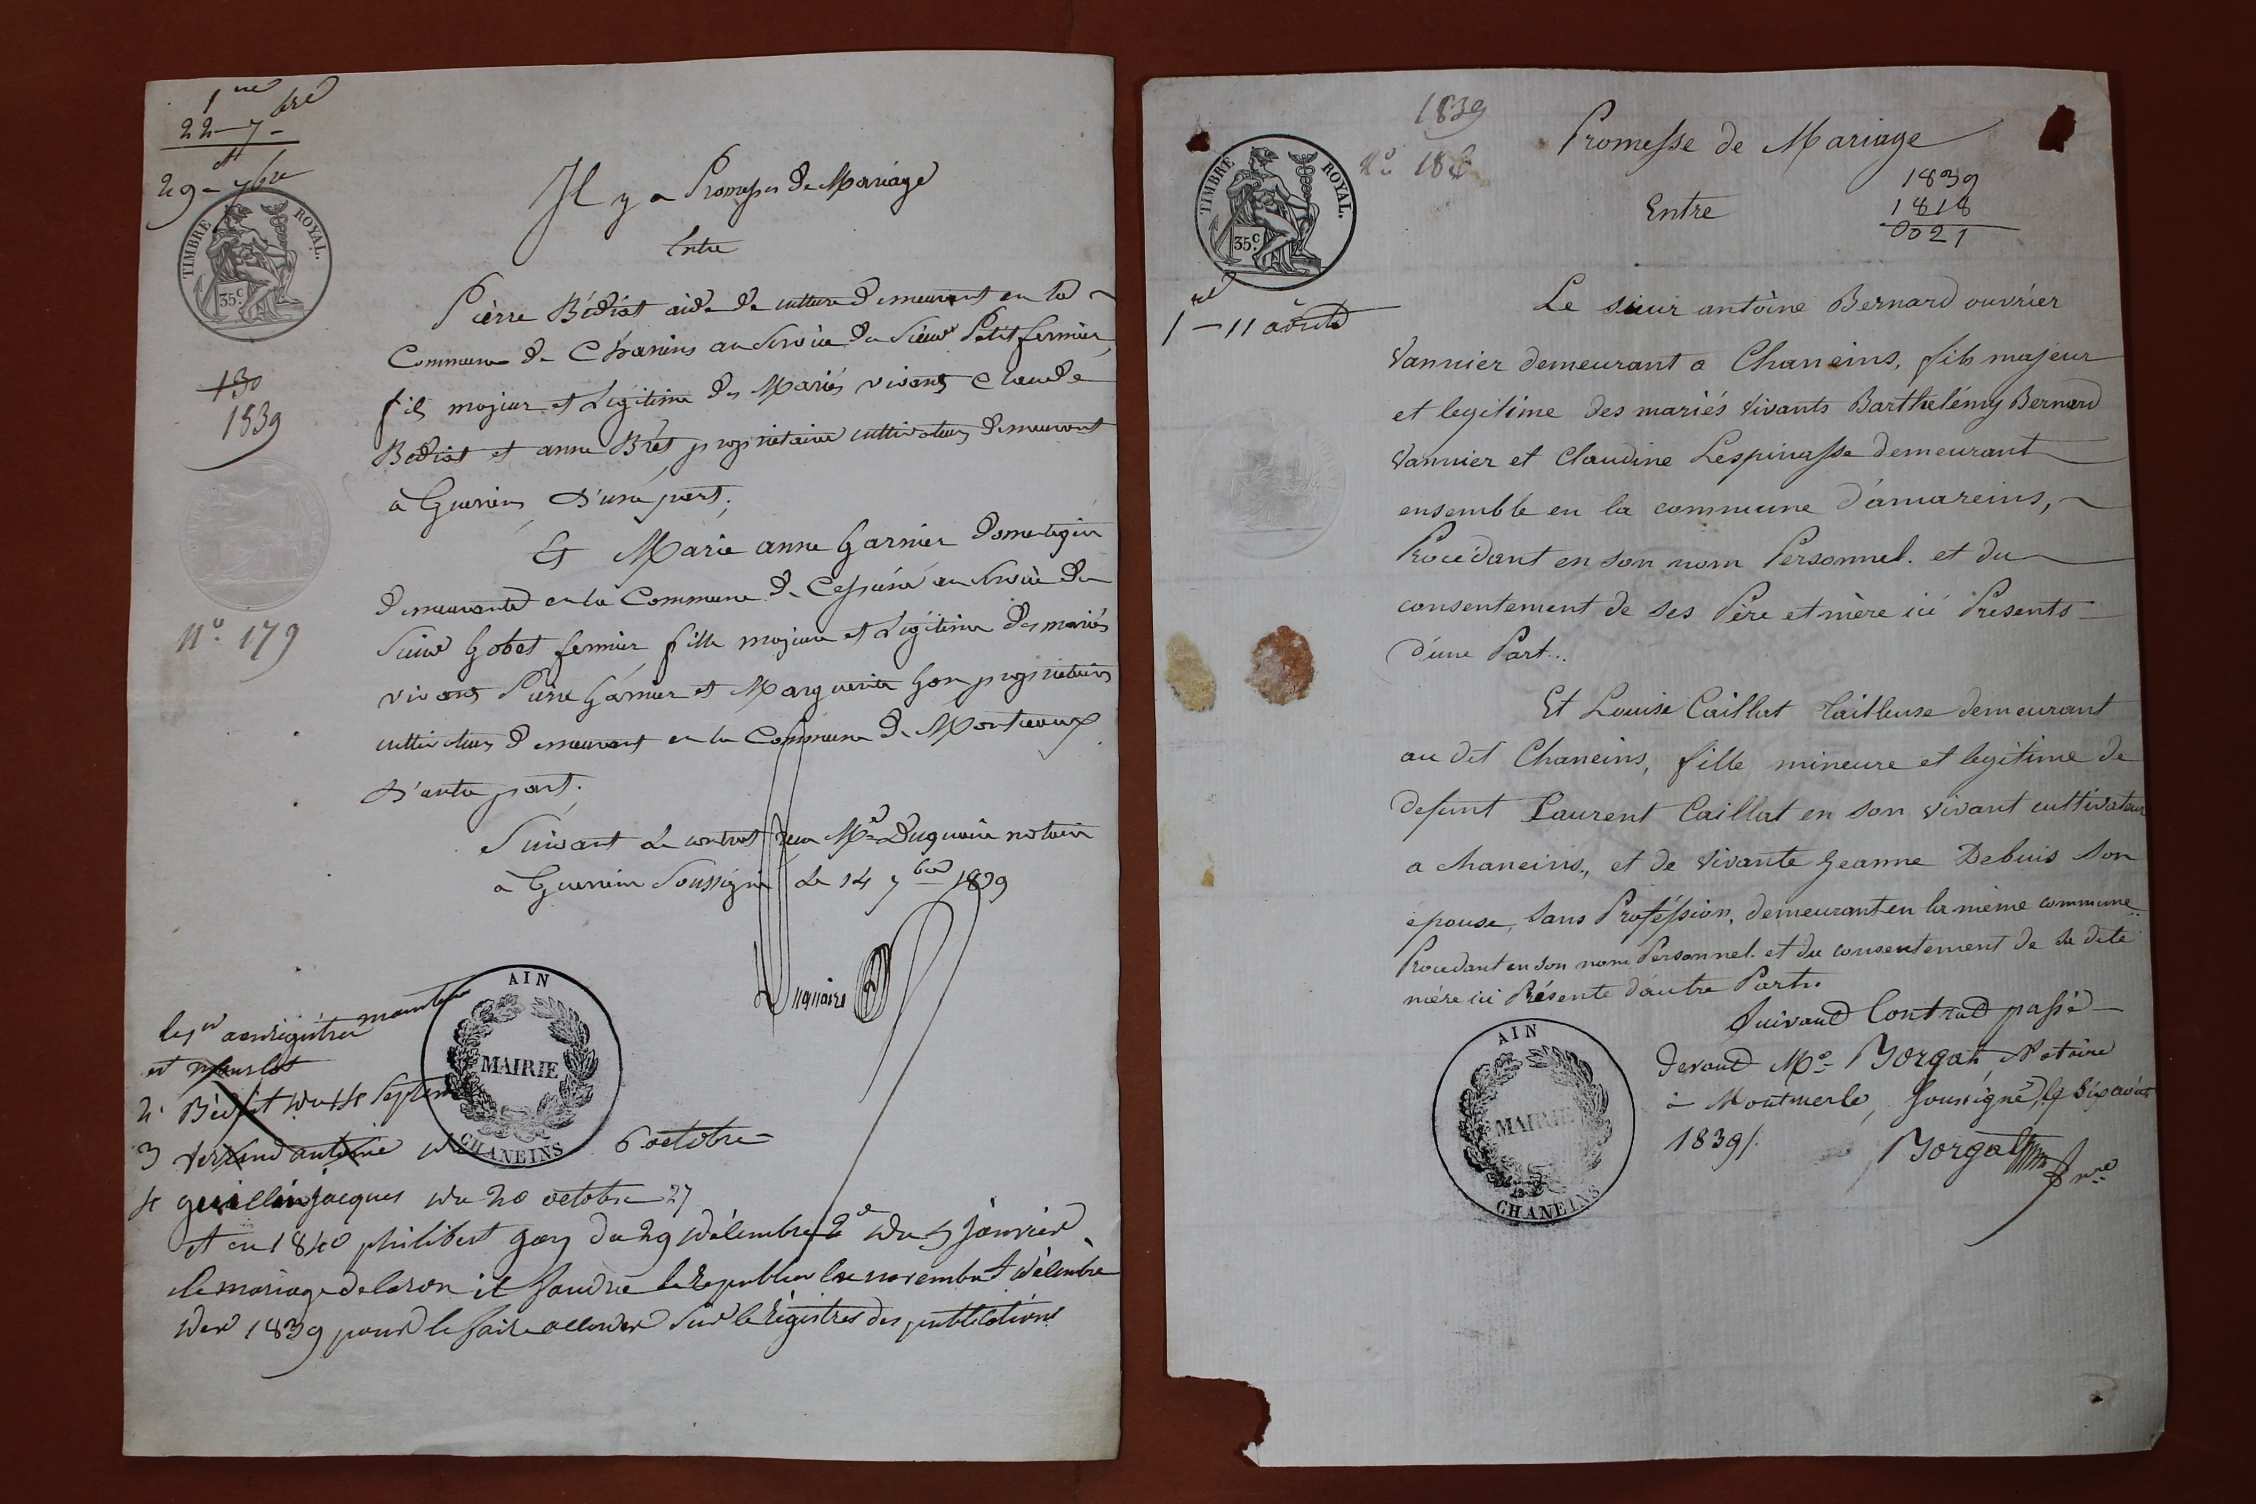 1re
22 - 7bre
29 - 7bre
TIMBRE ROYAL.
35c.
130
1839
N° 179
Il y a Promesses de Mariage
Entre
Pierre Bédiat aide de culture demeurant en la
Commune de Chaneins au Service du Sieur Petit fermier,
fils majeur et Légitime des Mariés vivans Claude
Bediat et anne Brêt propriétaires cultivateurs demeurant
à Guereins d'une part;
Et Marie anne Garnier domestique
demeurante en la Commune de Cesseins au Service du
Sieur Gobet fermier fille majeure et Légitime des mariés
vivans Pierre Garnier et Marguerite Gon propriétaires
cultivateurs demeurant en la Commune de Montceaux
d'autre part;
Suivant le contrat reçu Me Duquaire notaire
à Guereins Soussigné le 14 7bre 1839
Duquaire
AIN
MAIRIE
CHANEINS
les aenrégistrer
et
2 Bédiat du 15 Septem
3 antoine 6 octobre
4 guillin jacques du 20 octobre 27
et en 1840 philibert gay du 29 décembre 2e du 5 janvier
le mariage delaron il faudra le Republier novembre décembre
der 1839 pour le faire Sur le Régistres des publications
1839
N° 186
Promesse de Mariage
1839
1818
0021
Entre
TIMBRE ROYAL.
35c.
1re - 11 aout
Le sieur antoine Bernard ouvrier
Vannier demeurant a Chaneins, fils majeur
et legitime des mariés vivants Barthelémy Bernard
Vannier et Claudine Lespinasse demeurant
ensemble en la commune d'amareins,
Procédant en son nom Personnel. et du
consentement de ses Père et mère ici Presents
d'une Part..
Et Louise Caillat tailleuse demeurant
au dit Chaneins, fille mineure et legitime de
defunt Laurent Caillat en son vivant cultivateur
a chaneins, et de vivante Jeanne Debuis son
épouse, sans Proféssion, demeurant en la même commune..
Procedant en son nom Personnel. et du consentement de sa dite
mère ici Présente d'autre Part..
Suivant Contrat passé
devant Me Yorgat, Notaire
à Montmerle, soussigné, le six aout
1839/.
Yorgat
AIN
MAIRIE
CHANEINS